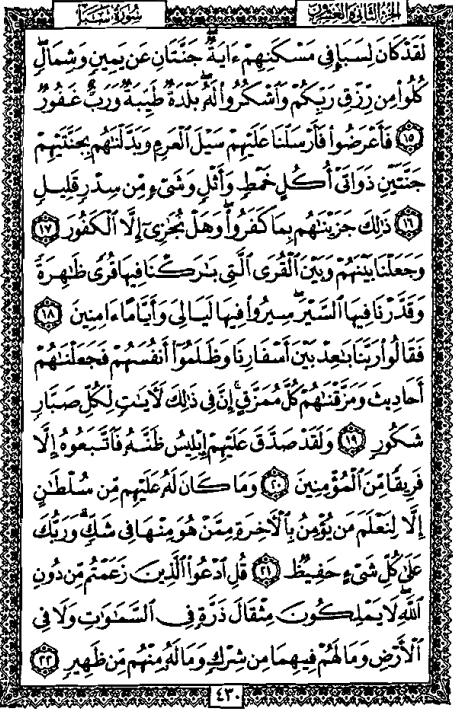 سُورَةُ سَبَإٍ الجُزءُ الثَّانِي وَالعِشْرُون
لَقَدْ كَانَ لِسَبَإٍ فِي مَسْكَنِهِمْ ءَايَةٌ ۖ جَنَّتَانِ عَن يَمِينٍ وَشِمَالٍ ۖ
كُلُوا۟ مِن رِّزْقِ رَبِّكُمْ وَٱشْكُرُوا۟ لَهُۥ ۚ بَلْدَةٌ طَيِّبَةٌ وَرَبٌّ غَفُورٌ
﴿١٥﴾ فَأَعْرَضُوا۟ فَأَرْسَلْنَا عَلَيْهِمْ سَيْلَ ٱلْعَرِمِ وَبَدَّلْنَٰهُم بِجَنَّتَيْهِمْ
جَنَّتَيْنِ ذَوَاتَىْ أُكُلٍ خَمْطٍ وَأَثْلٍ وَشَىْءٍ مِّن سِدْرٍ قَلِيلٍ
﴿١٦﴾ ذَٰلِكَ جَزَيْنَٰهُم بِمَا كَفَرُوا۟ ۖ وَهَلْ نُجَٰزِىٓ إِلَّا ٱلْكَفُورَ ﴿١٧﴾
وَجَعَلْنَا بَيْنَهُمْ وَبَيْنَ ٱلْقُرَى ٱلَّتِى بَٰرَكْنَا فِيهَا قُرًى ظَٰهِرَةً
وَقَدَّرْنَا فِيهَا ٱلسَّيْرَ ۖ سِيرُوا۟ فِيهَا لَيَالِىَ وَأَيَّامًا ءَامِنِينَ ﴿١٨﴾
فَقَالُوا۟ رَبَّنَا بَٰعِدْ بَيْنَ أَسْفَارِنَا وَظَلَمُوٓا۟ أَنفُسَهُمْ فَجَعَلْنَٰهُمْ
أَحَادِيثَ وَمَزَّقْنَٰهُمْ كُلَّ مُمَزَّقٍ ۚ إِنَّ فِى ذَٰلِكَ لَءَايَٰتٍ لِّكُلِّ صَبَّارٍ
شَكُورٍ ﴿١٩﴾ وَلَقَدْ صَدَّقَ عَلَيْهِمْ إِبْلِيسُ ظَنَّهُۥ فَٱتَّبَعُوهُ إِلَّا
فَرِيقًا مِّنَ ٱلْمُؤْمِنِينَ ﴿٢٠﴾ وَمَا كَانَ لَهُۥ عَلَيْهِم مِّن سُلْطَٰنٍ
إِلَّا لِنَعْلَمَ مَن يُؤْمِنُ بِٱلْءَاخِرَةِ مِمَّنْ هُوَ مِنْهَا فِى شَكٍّ ۗ وَرَبُّكَ
عَلَىٰ كُلِّ شَىْءٍ حَفِيظٌ ﴿٢١﴾ قُلِ ٱدْعُوا۟ ٱلَّذِينَ زَعَمْتُم مِّن دُونِ
ٱللَّهِ ۖ لَا يَمْلِكُونَ مِثْقَالَ ذَرَّةٍ فِى ٱلسَّمَٰوَٰتِ وَلَا فِى
ٱلْأَرْضِ وَمَا لَهُمْ فِيهِمَا مِن شِرْكٍ وَمَا لَهُۥ مِنْهُم مِّن ظَهِيرٍ ﴿٢٢﴾
٤٣٠